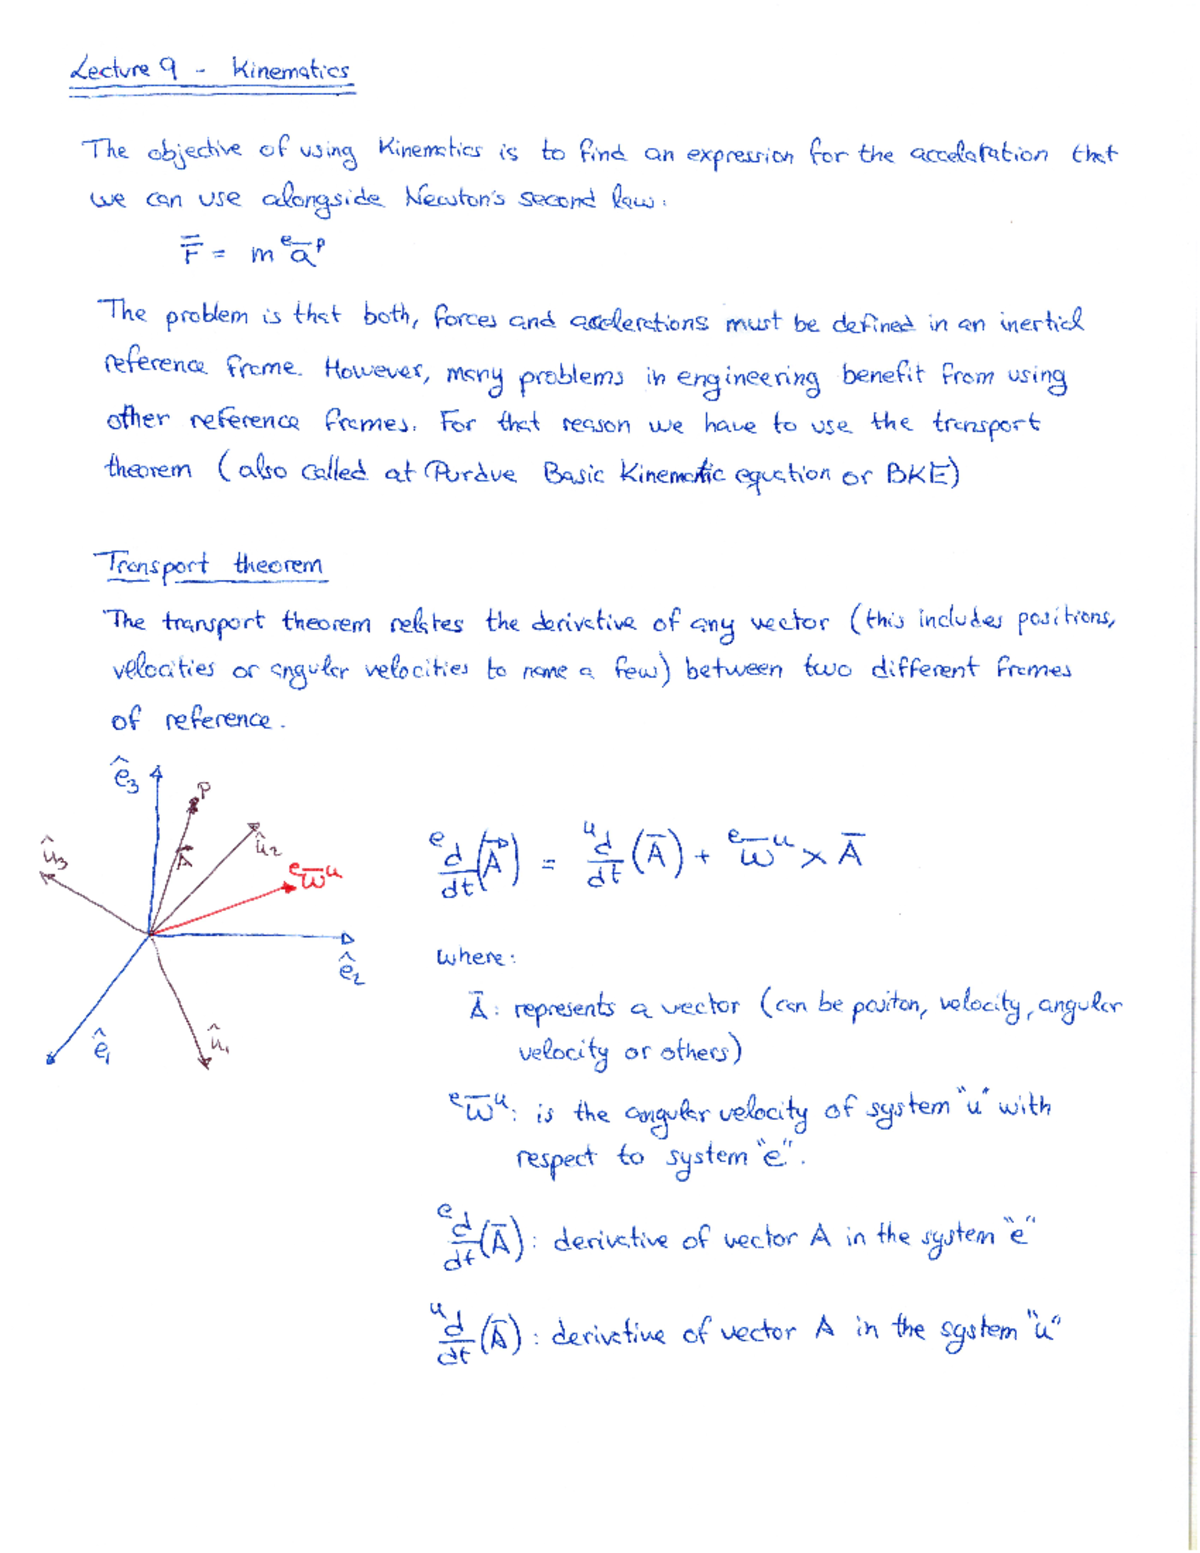 Lecture 9 - Kinematics
The objective of using Kinematics is to find an expression for the accelaration that
we can use alongside Newton's second law:
F̄ = m ᵉāᵖ
The problem is that both, forces and accelerations must be defined in an inertial
reference frame. However, many problems in engineering benefit from using
other reference frames. For that reason we have to use the transport
theorem (also called at Purdue Basic Kinematic equation or BKE)
Transport theorem
The transport theorem relates the derivative of any vector (this includes positions,
velocities or angular velocities to name a few) between two different frames
of reference.
ê₃
P
û₃
A⃗
û₂
ᵉω̄ᵘ
ê₂
ê₁
û₁
ᵉd/dt(A⃗) = ᵘd/dt(Ā) + ᵉω̄ᵘ × Ā
where:
Ā: represents a vector (can be positon, velocity, angular
velocity or others)
ᵉω̄ᵘ: is the angular velocity of system "u" with
respect to system "e".
ᵉd/dt(Ā): derivative of vector A in the system "e"
ᵘd/dt(Ā): derivative of vector A in the system "u"